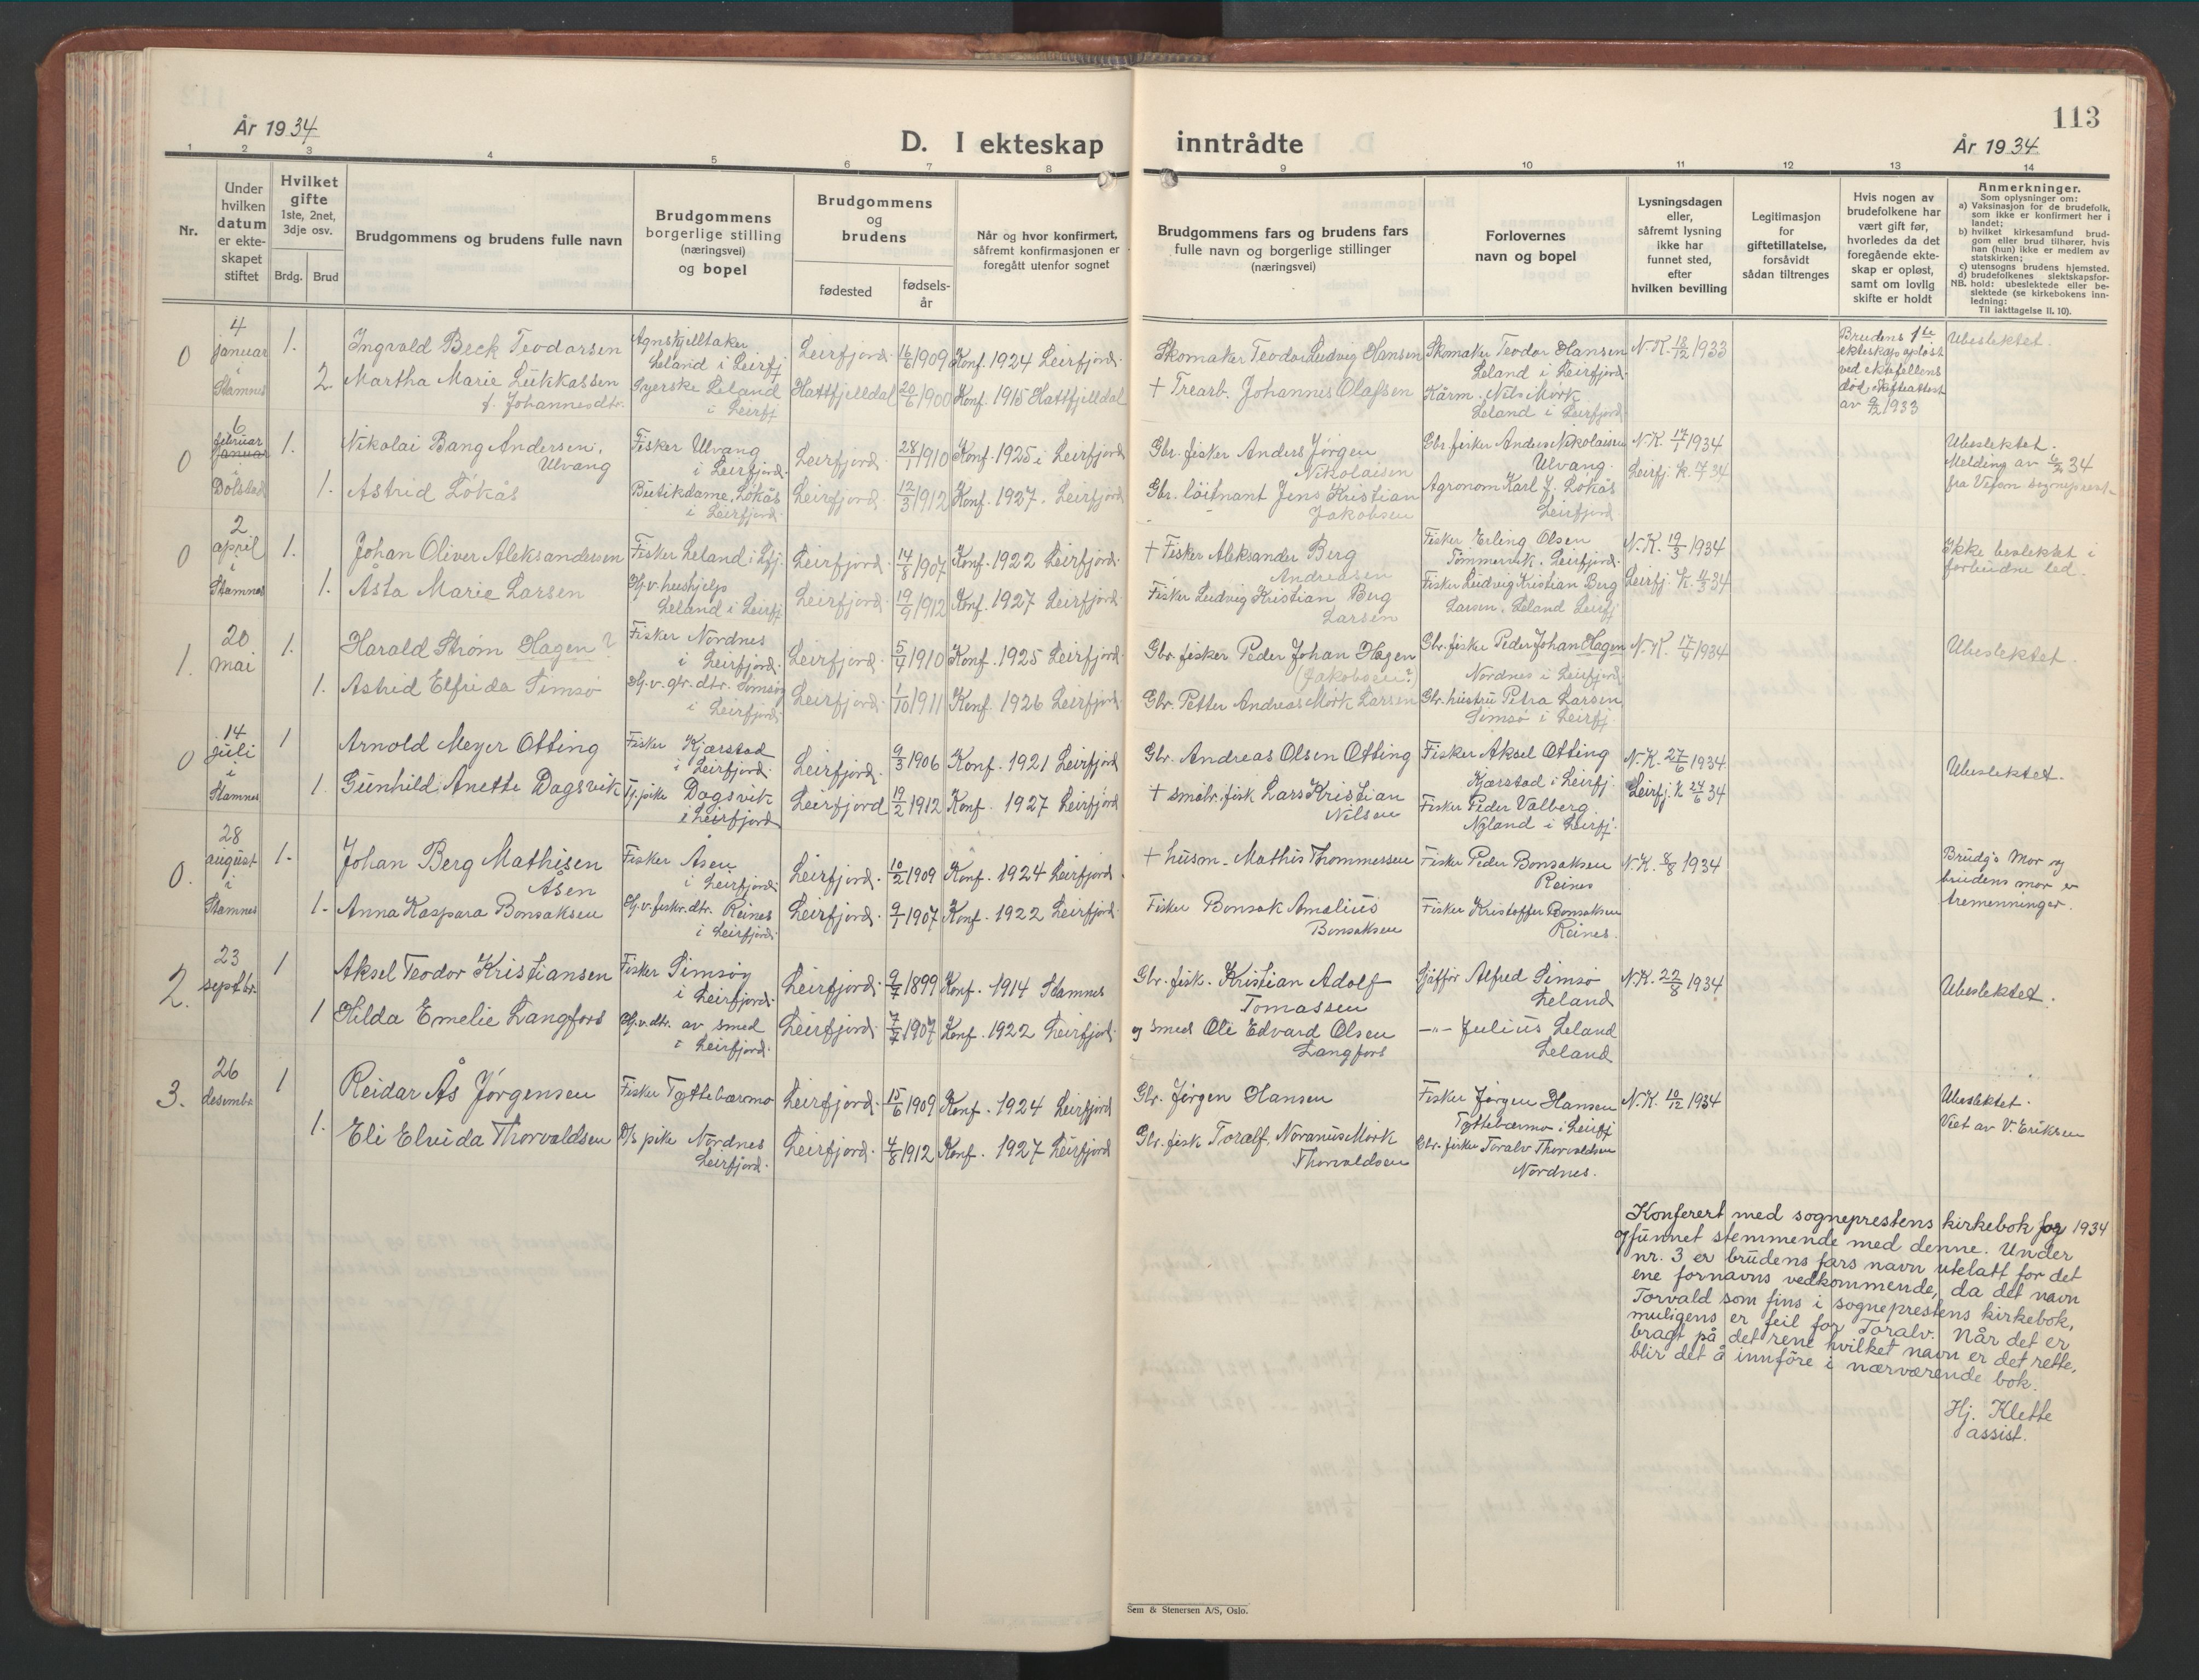 113
År 1934
D. I ekteskap inntrådte
År 1934
1 2 3 4 5 6 7 8 9 10 11 12 13 14
Nr.
Under
hvilken
datum
er ekte-
skapet
stiftet
Hvilket
gifte
1ste, 2net,
3dje osv.
Brdg. Brud
Brudgommens og brudens fulle navn
Brudgommens
borgerlige stilling
(næringsvei)
og bopel
Brudgommens
og
brudens
fødested
fødsels-
år
Når og hvor konfirmert,
såfremt konfirmasjonen er
foregått utenfor sognet
Brudgommens fars og brudens fars
fulle navn og borgerlige stillinger
(næringsvei)
Forlovernes
navn og bopel
Lysningsdagen
eller,
såfremt lysning
ikke har
funnet sted,
efter
hvilken bevilling
Legitimasjon
for
giftetillatelse,
forsåvidt
sådan tiltrenges
Hvis nogen av
brudefolkene har
vært gift før,
hvorledes da det
foregående ekte-
skap er opløst,
samt om lovlig
skifte er holdt
Anmerkninger.
Som oplysninger om:
a) Vaksinasjon for de brudefolk,
som ikke er konfirmert her i
landet;
b) hvilket kirkesamfund brud-
gom eller brud tilhører, hvis
han (hun) ikke er medlem av
statskirken;
c) utensogns brudens hjemsted.
d) brudefolkenes slektskapsfor-
NB. hold: ubeslektede eller be-
slektede (se kirkebokens inn-
ledning:
Til iakttagelse II. 10).
0
4
januar
i
Stamnes
1.
Ingvald Beck Teodorsen
Agnskjelltaker
Leland i Leirfj
Leirfjord. 16/6 1909 Konf. 1924 Leirfjord.
Skomaker Teodor Ludvig Hansen
Skomaker Teodor Hansen
Leland i Leirfjord.
N.K. 18/12 1933
Brudens 1ste
ekteskap opløst
ved ektefellens
død, skifteattest
av 9/12 1933
Ubeslektet.
2.
Martha Marie Lukkassen
f. Johannesdtr.
Syerske Leland
i Leirfj
Hattfjelldal 20/6 1900 Konf. 1915 Hattfjelldal
+ Trearb. Johannes Olafsen
Nils Mørk
Leland i Leirfjord
0
6
februar
januar
i
Dolstad
1.
Nikolai Bang Andersen,
Ulvang
Fisker Ulvang
i Leirfjord.
Leirfjord. 28/1 1910 Konf. 1925 i Leirfjord
Gbr. fisker Anders Jørgen
Nikolaisen
Gbr. fisker Anders Nikolaisen
Ulvang.
N.K. 17/1 1934
Leirfj. k. 34
Ubeslektet.
Melding av 34
fra Vefsn sogneprest
1.
Astrid Løkås
Butikdame, Løkås
i Leirfjord.
Leirfjord. 12/3 1912 Konf. 1927. Leirfjord.
Gbr. løitnant Jens Kristian
Jakobsen
Agronom Karl J. Løkås
Leirfjord
0
2
april
i
Stamnes
1.
Johan Oliver Aleksandersen
Fisker Leland i Lfj.
Leirfjord. 14/8 1907 Konf. 1922 Leirfjord.
+ Fisker Aleksander Berg
Andreasen
Fisker Erling Olsen
Tømmervik. Leirfjord.
N.K. 19/3 1934
Leirfj. k. 34
Ikke beslektet i
forbudne led.
1.
Åsta Marie Larsen
Hj.v. hushjelp
Leland i Leirfj
Leirfjord. 19/9 1912 Konf. 1927 Leirfjord.
Fisker Ludvig Kristian Berg
Larsen
Fisker Ludvig Kristian Berg
Larsen. Leland Leirfj
1.
20
mai
1.
Harald Strøm Hagen?
Fisker Nordnes
i Leirfjord.
Leirfjord. 5/4 1910 Konf. 1925 Leirfjord.
Gbr. fisker Peder Johan Hagen
(Jakobsen?)
Gbr. fisker Peder Johan Hagen
Nordnes i Leirfjord
N.K. 17/4 1934
Ubeslektet.
1.
Astrid Elfrida Simsø
Hj.v. gbr. dtr. Simsøy
i Leirfjord.
Leirfjord. 1/10 1911 Konf. 1926 Leirfjord.
Gbr. Petter Andreas Mørk Larsen
Gbr. hustru Petra Larsen
Simsø i Leirfj.
0
14
juli
i
Stamnes
1
Arnold Meyer Otting
Fisker Kjærstad
i Leirfjord.
Leirfjord. 9/3 1906 Konf. 1921 Leirfjord
Gbr. Andreas Olsen Otting
Fisker Aksel Otting
Kjærstad i Leirfj.
N.K. 27/6 1934.
Leirfj. k 24/6 34
Ubeslektet.
1.
Gunhild Anette Dagsvik
Tj. pike Dagsvik
i Leirfjord
Leirfjord 19/2 1912 Konf. 1927 Leirfjord
+ småbr. fisk Lars Kristian
Nilsen
Fisker Peder Valberg
Nyland i Leirfj.
0.
28
august
i
Stamnes
1.
Johan Berg Mathisen
Åsen
Fisker Åsen
i Leirfjord.
Leirfjord. 10/2 1909 Konf. 1924 Leirfjord.
+ husm. Mathis Thommessen
Fisker Peder Bonsaksen
Reines
N.K. 8/8 1934
Brudg's mor og
brudens mor er
tremenninger.
1.
Anna Kaspara Bonsaksen
Hj.v. fiskr. dtr. Reines
i Leirfjord.
Leirfjord. 9/1 1907 Konf. 1922 Leirfjord.
Fisker Bonsak Amalius
Bonsaksen
Fisker Kristoffer Bonsaksen
Reines.
2.
23
septbr.
1
Aksel Teodor Kristiansen
Fisker Simsøy
i Leirfjord.
Leirfjord. 9/7 1899 Konf. 1914 Stamnes
Gbr. fisk. Kristian Adolf
Tomassen
Sjåffør Alfred Simsø
Leland
N.K. 22/8 1934
Ubeslektet.
1
Hilda Emelie Langfors
Hj.v. dtr. av smed
i Leirfjord.
Leirfjord. 7/7 1907 Konf. 1922 Leirfjord.
og smed Oli Edvard Olsen
Langfors
—"— Julius Leland
Leland
3.
26
desember
1
Reidar Ås Jørgensen
Fisker Tyttebærmo
Leirfjord. 15/6 1909 Konf. 1924 Leirfjord
Gbr. Jørgen Hansen
Fisker Jørgen Hansen
Tyttebærmo i Leirfj
N.K. 10/12 1934
Ubeslektet.
Viet av V. Eriksen
1.
Eli Elvida Thorvaldsen
pike Nordnes
Leirfjord.
Leirfjord. 4/8 1912 Konf. 1927 Leirfjord
Gbr. fisk Toralf. Noranus Mørk
Thorvaldsen
Gbr. fisker Toralv Thorvaldsen
Nordnes.
Konferert med sogneprestens kirkebok for 1934
og funnet stemmende med denne. Under
nr. 3 er brudens fars navn utelatt for det
ene fornavns vedkommende, da det navn
Torvald som fins i sogneprestens kirkebok,
muligens er feil for Toralv. Når det er
bragt på det rene hvilket navn er det rette,
blir det å innføre i nærværende bok.
Hj. Klette
assist.
Sem & Stenersen A/S, Oslo.